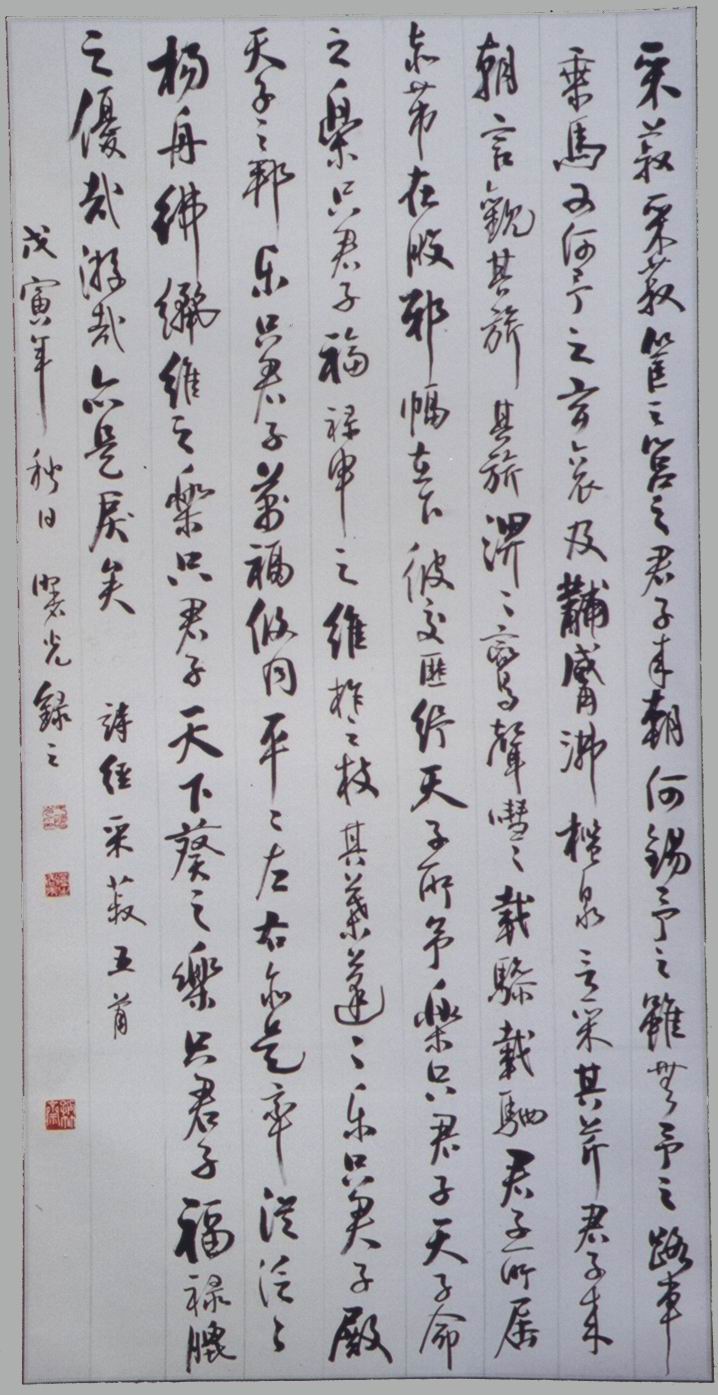 采菽采菽筐之筥之君子来朝何錫予之雖無予之路車
乗馬又何予之玄衮及黼觱沸檻泉言采其芹君子来
朝言觀其旂其旂淠〻鸞聲嘒〻載驂載駟君子所届
赤芾在股邪幅在下彼交匪紓天子所予樂只君子天子命
之樂只君子福禄申之維柞之枝其葉蓬〻乐只君子殿
天子之邦乐只君子萬福攸同平〻左右亦是率從泛〻
楊舟紼纚維之樂只君子天下葵之樂只君子福禄膍
之優哉游哉亦是戾矣
詩經采菽五首
戊寅年秋日曙光録之